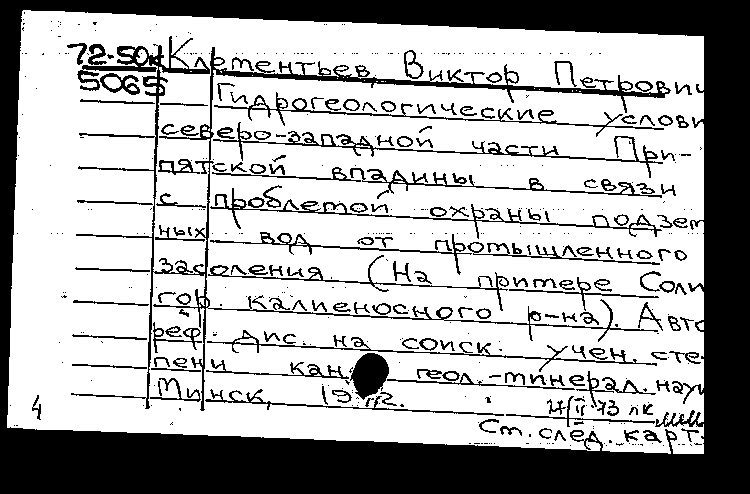 72-50к Клементьев, Виктор Петрович
5065 Гидрогеологические услови
северо-западной части При-
пятской впадины в связи
с проблемой охраны подзем
ных вод от промышленного
засоления. (На примере Соли
гор. калиеносного р-на). Авто
реф. дис. на соиск. учен. сте-
пени кан. геол.-минерал. наук
Минск,
4
Ст. след. карт.